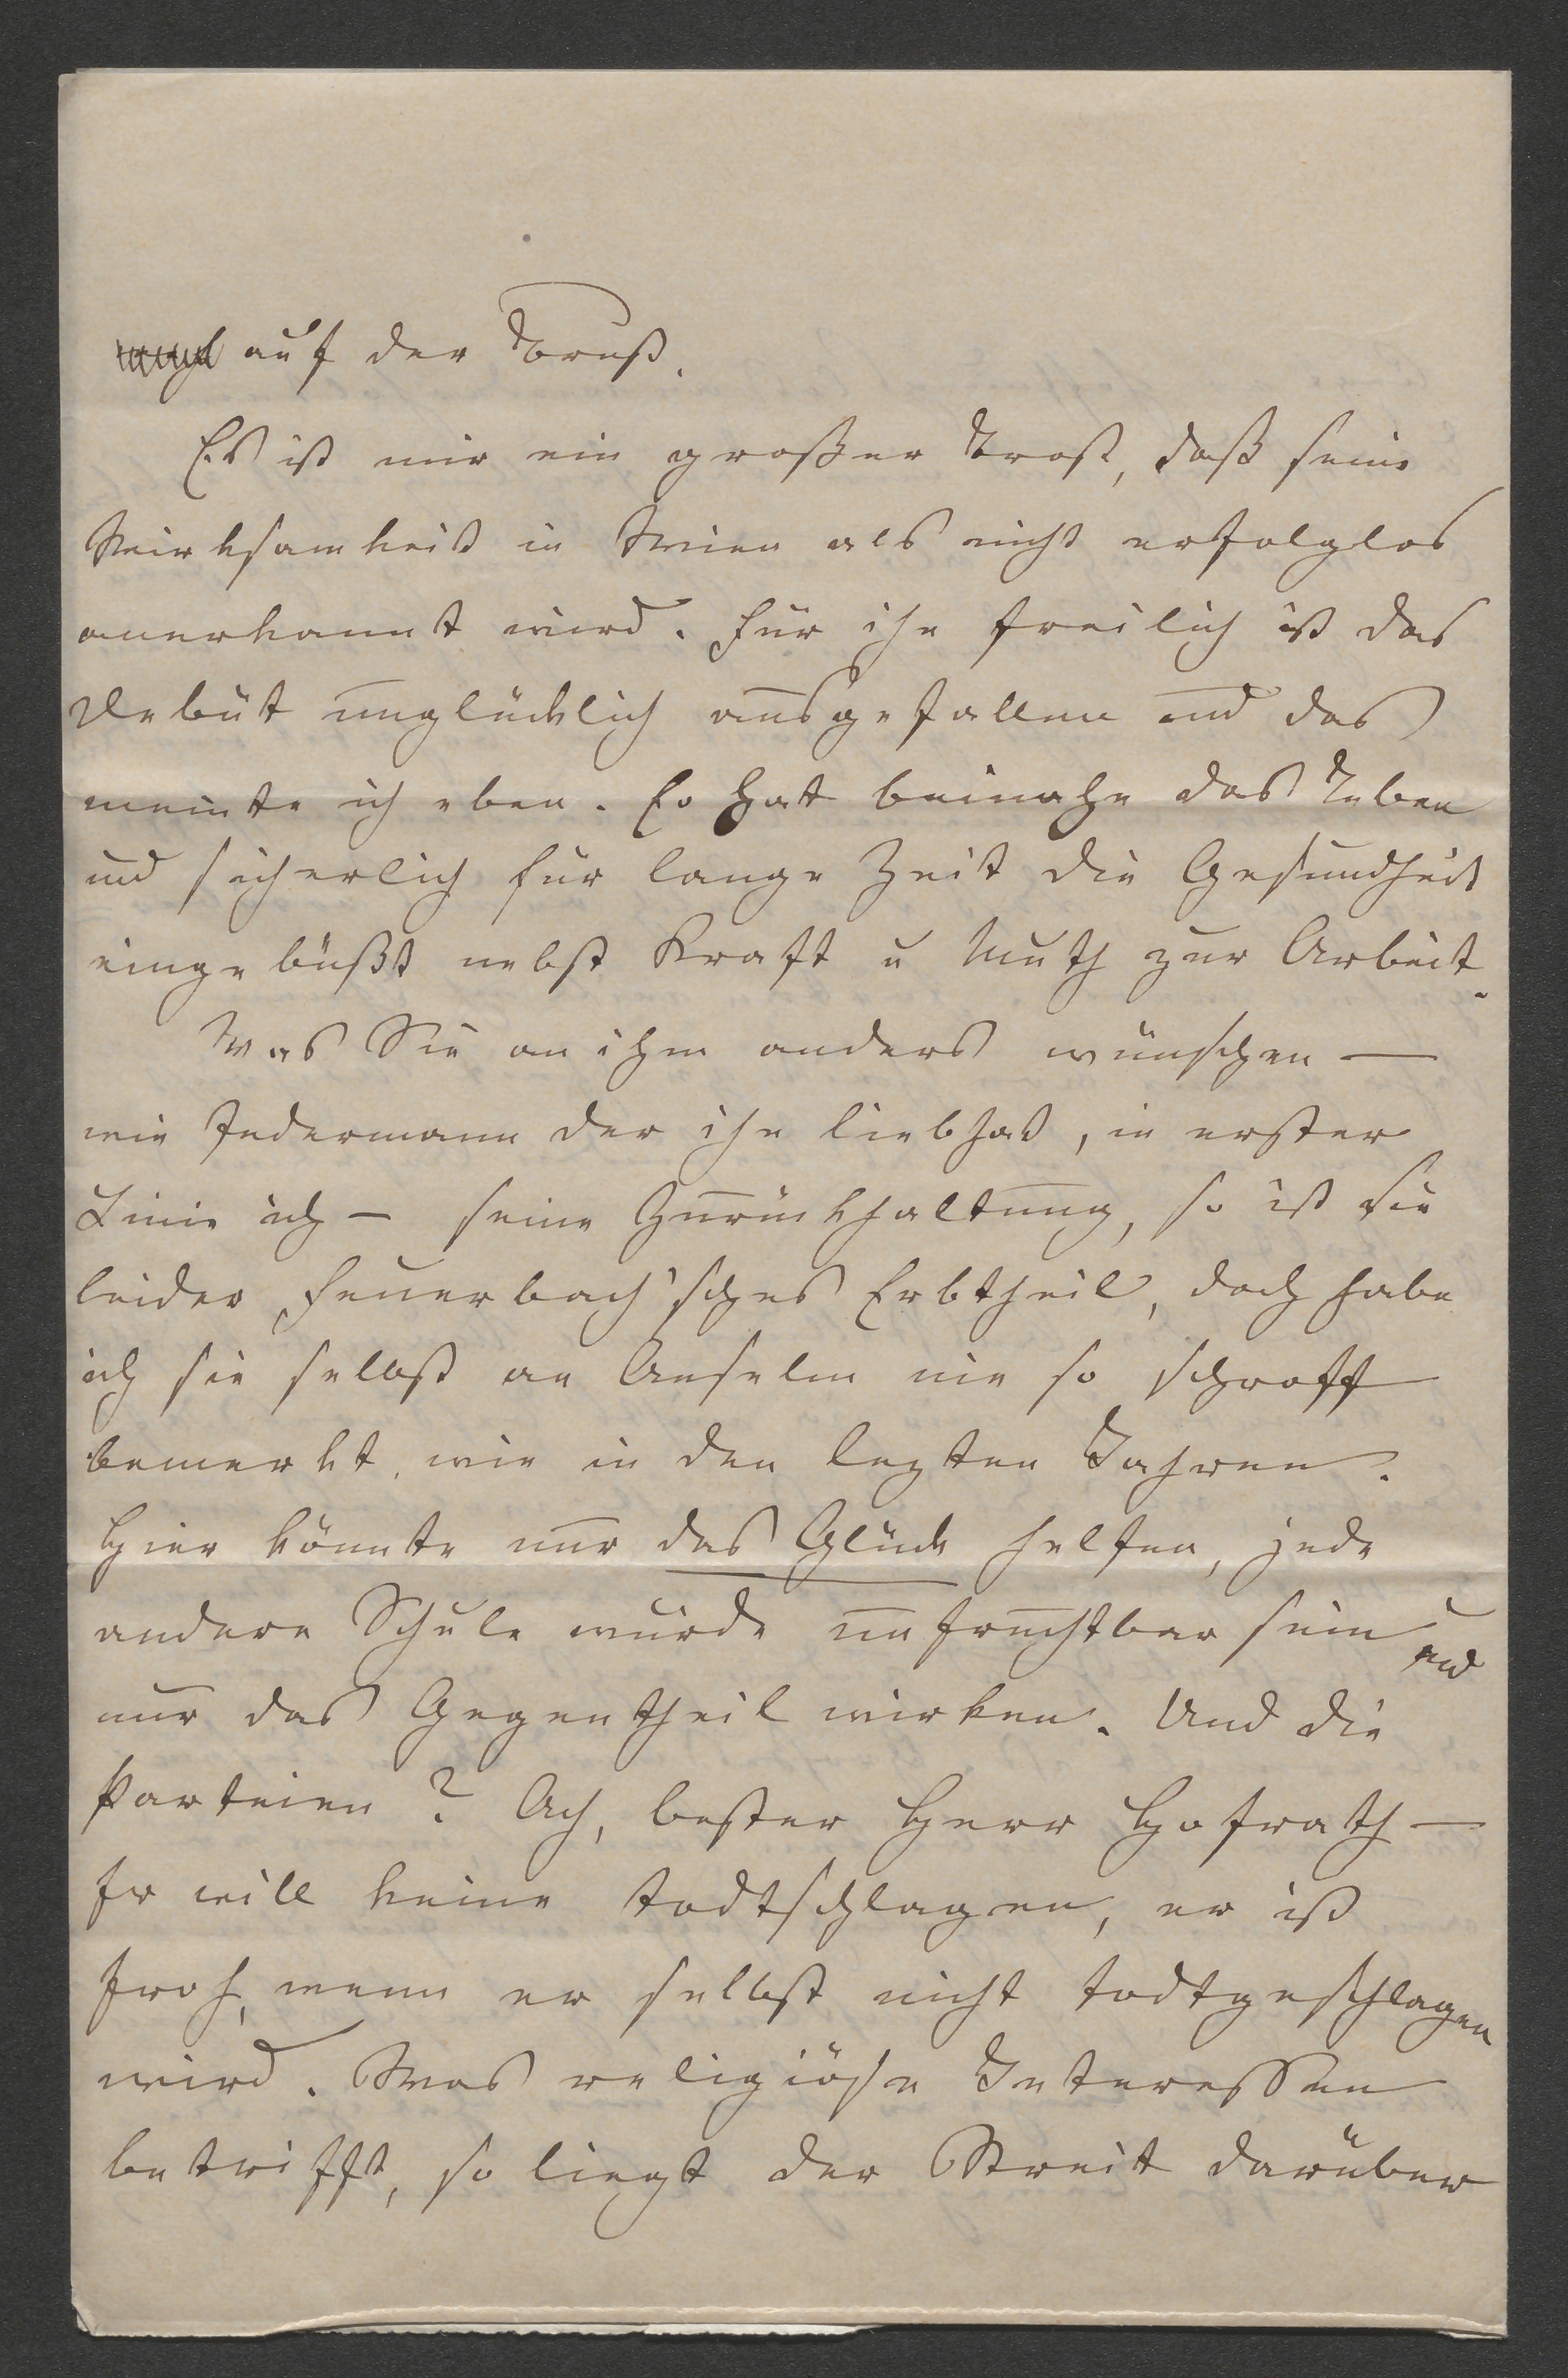 auf der Brust.
Es ist mir ein großer Trost, daß seine
Wirksamkeit in Wien als nicht erfolglos
anerkannt wird. Für ihn freilich ist das
Debüt unglücklich ausgefallen und das
meinte ich eben. Er hat beinahe das Leben
und sicherlich für lange Zeit die Gesundheit
eingebüßt nebst Kraft u Muth zur Arbeit.
Was Sie an ihm anders wünschen —
wie Jedermann der ihn liebhat, in erster
Linie ich — seine Zurückhaltung, so ist sie
leider Feuerbach'sches Erbtheil, doch habe
ich sie selbst an Anselm nie so schroff
bemerkt, wie in den letzten Jahren.
Hier könnte nur das Glück helfen, jede
andere Schule würde unfruchtbar sein und
nur das Gegentheil wirken. Und die
Parteien? Ach, bester Herr Hofrath —
Er will keine todtschlagen, er ist
froh, wenn er selbst nicht todtgeschlagen
wird. Was religiöse Interessen
betrifft, so liegt der Streit darüber